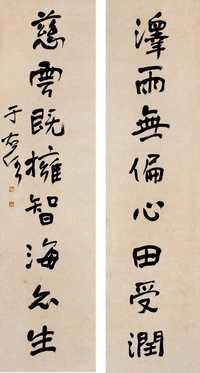 澤雨無偏心田受潤
慈雲既擁智海生
于右任